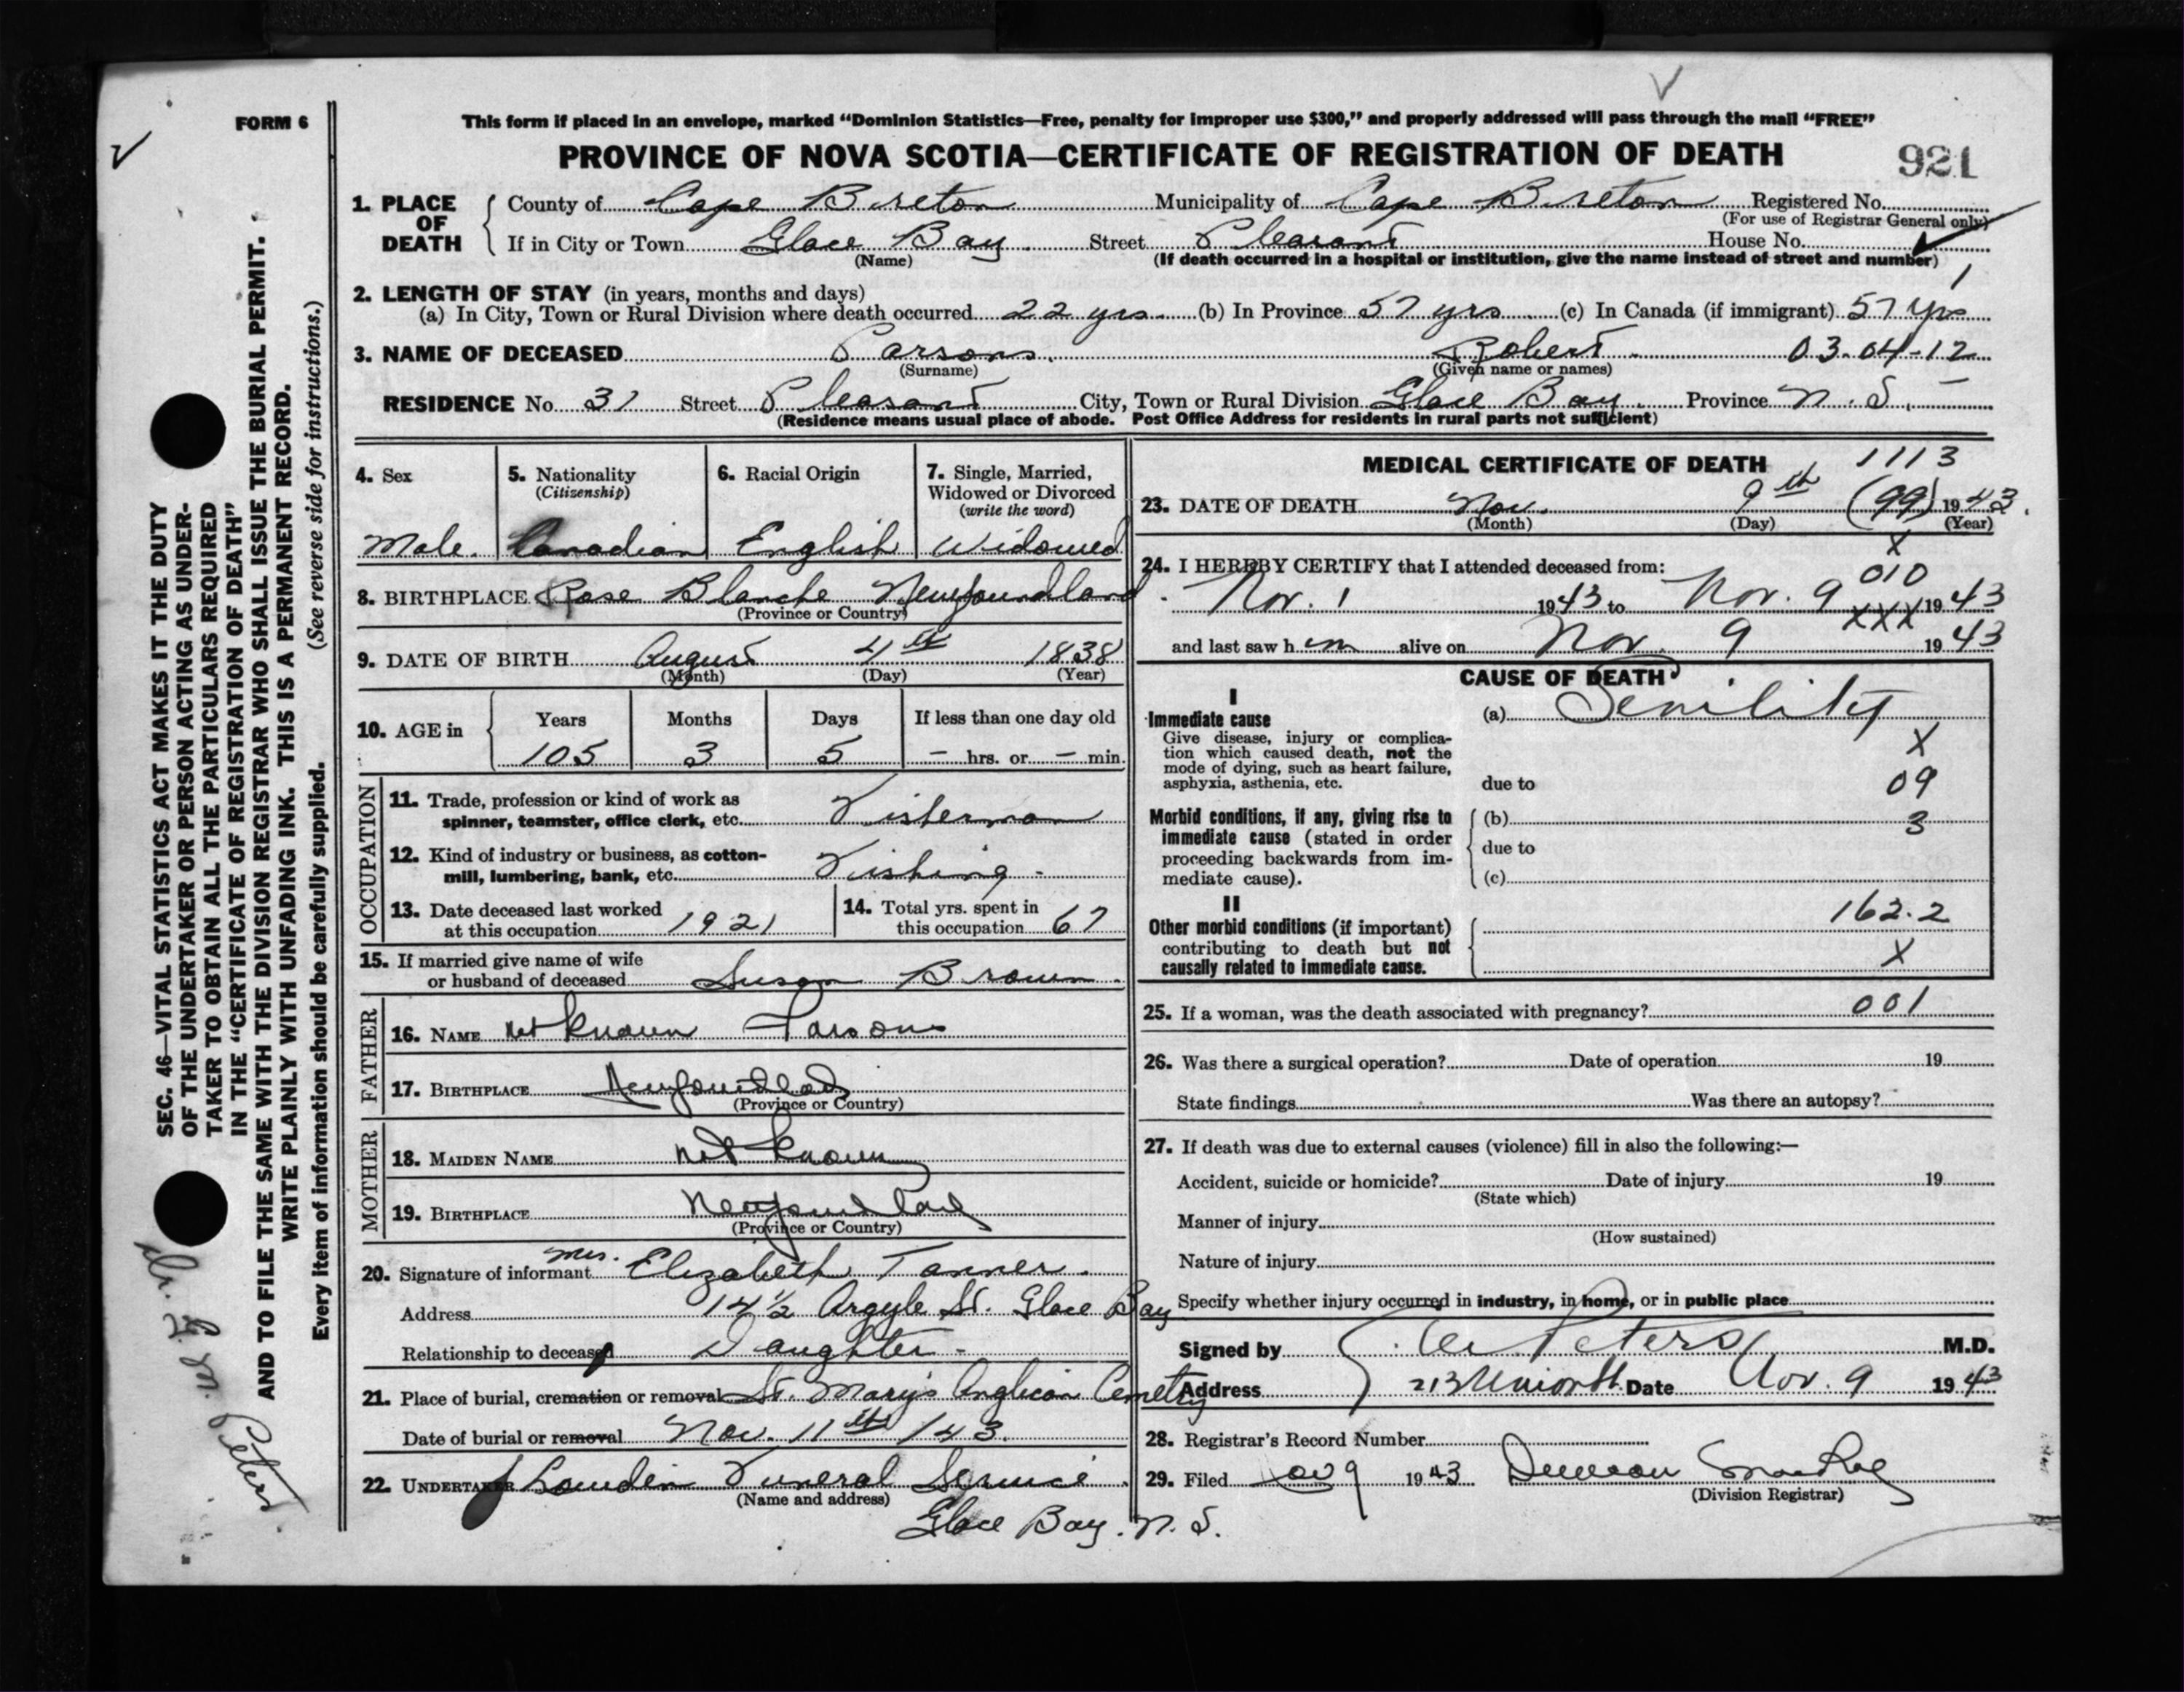 FORM 6
This form if placed in an envelope, marked “Dominion Statistics—Free, penalty for improper use $300,” and properly addressed will pass through the mail “FREE”
PROVINCE OF NOVA SCOTIA—CERTIFICATE OF REGISTRATION OF DEATH
921
1. PLACE OF DEATH
County of Cape Breton Municipality of Cape Breton Registered No.
(For use of Registrar General only)
If in City or Town Glace Bay Street Pleasant House No.
(Name) (If death occurred in a hospital or institution, give the name instead of street and number)
1
2. LENGTH OF STAY (in years, months and days)
(a) In City, Town or Rural Division where death occurred 22 yrs. (b) In Province 57 yrs (c) In Canada (if immigrant) 57 yrs
3. NAME OF DECEASED Parsons. Robert. 03.04-12
(Surname) (Given name or names)
RESIDENCE No. 31 Street Pleasant City, Town or Rural Division Glace Bay. Province N. S.
(Residence means usual place of abode. Post Office Address for residents in rural parts not sufficient)
4. Sex
Male.
5. Nationality
(Citizenship)
Canadian
6. Racial Origin
English
7. Single, Married,
Widowed or Divorced
(write the word)
Widowed
8. BIRTHPLACE Rose Blanche Newfoundland.
(Province or Country)
9. DATE OF BIRTH August 4th 1838
(Month) (Day) (Year)
10. AGE in Years Months Days If less than one day old
105 3 5 — hrs. or — min.
OCCUPATION
11. Trade, profession or kind of work as
spinner, teamster, office clerk, etc. Fisherman
12. Kind of industry or business, as cotton-
mill, lumbering, bank, etc. Fishing -
13. Date deceased last worked
at this occupation 1921
14. Total yrs. spent in
this occupation 67
15. If married give name of wife
or husband of deceased Susan Brown.
FATHER
16. NAME Not known Parsons
17. BIRTHPLACE Newfoundland
(Province or Country)
MOTHER
18. MAIDEN NAME Not known
19. BIRTHPLACE Newfoundland
(Province or Country)
20. Signature of informant Mrs. Elizabeth Tanner.
Address 14 1/2 Argyle St. Glace Bay
Relationship to deceased Daughter -
21. Place of burial, cremation or removal St. Mary's Anglican Cemetry
Date of burial or removal Nov. 11th /43.
22. UNDERTAKER Lowden Funeral Service.
(Name and address)
Glace Bay. N. S.
MEDICAL CERTIFICATE OF DEATH
1113
23. DATE OF DEATH Nov. 9th (99) 1943.
(Month) (Day) (Year)
X
24. I HEREBY CERTIFY that I attended deceased from:
010
Nov. 1 1943 to Nov. 9 1943
XXX
and last saw him alive on Nov. 9 1943
CAUSE OF DEATH
I
Immediate cause
Give disease, injury or complica-
tion which caused death, not the
mode of dying, such as heart failure,
asphyxia, asthenia, etc.
(a) Senility
X
due to 09
Morbid conditions, if any, giving rise to
immediate cause (stated in order
proceeding backwards from im-
mediate cause).
(b) 3
due to
(c)
II
Other morbid conditions (if important)
contributing to death but not
causally related to immediate cause.
162.2
X
25. If a woman, was the death associated with pregnancy? 001
26. Was there a surgical operation? Date of operation 19
State findings Was there an autopsy?
27. If death was due to external causes (violence) fill in also the following:—
Accident, suicide or homicide? Date of injury 19
(State which)
Manner of injury
(How sustained)
Nature of injury
Specify whether injury occurred in industry, in home, or in public place
Signed by Peters M.D.
Address 213 Union St. Date Nov. 9 1943
28. Registrar's Record Number
29. Filed Nov 9 1943 Duncan
(Division Registrar)
SEC. 46—VITAL STATISTICS ACT MAKES IT THE DUTY
OF THE UNDERTAKER OR PERSON ACTING AS UNDER-
TAKER TO OBTAIN ALL THE PARTICULARS REQUIRED
IN THE “CERTIFICATE OF REGISTRATION OF DEATH”
AND TO FILE THE SAME WITH THE DIVISION REGISTRAR WHO SHALL ISSUE THE BURIAL PERMIT.
WRITE PLAINLY WITH UNFADING INK. THIS IS A PERMANENT RECORD.
Every item of information should be carefully supplied. (See reverse side for instructions.)
Dr. G. W. Peters